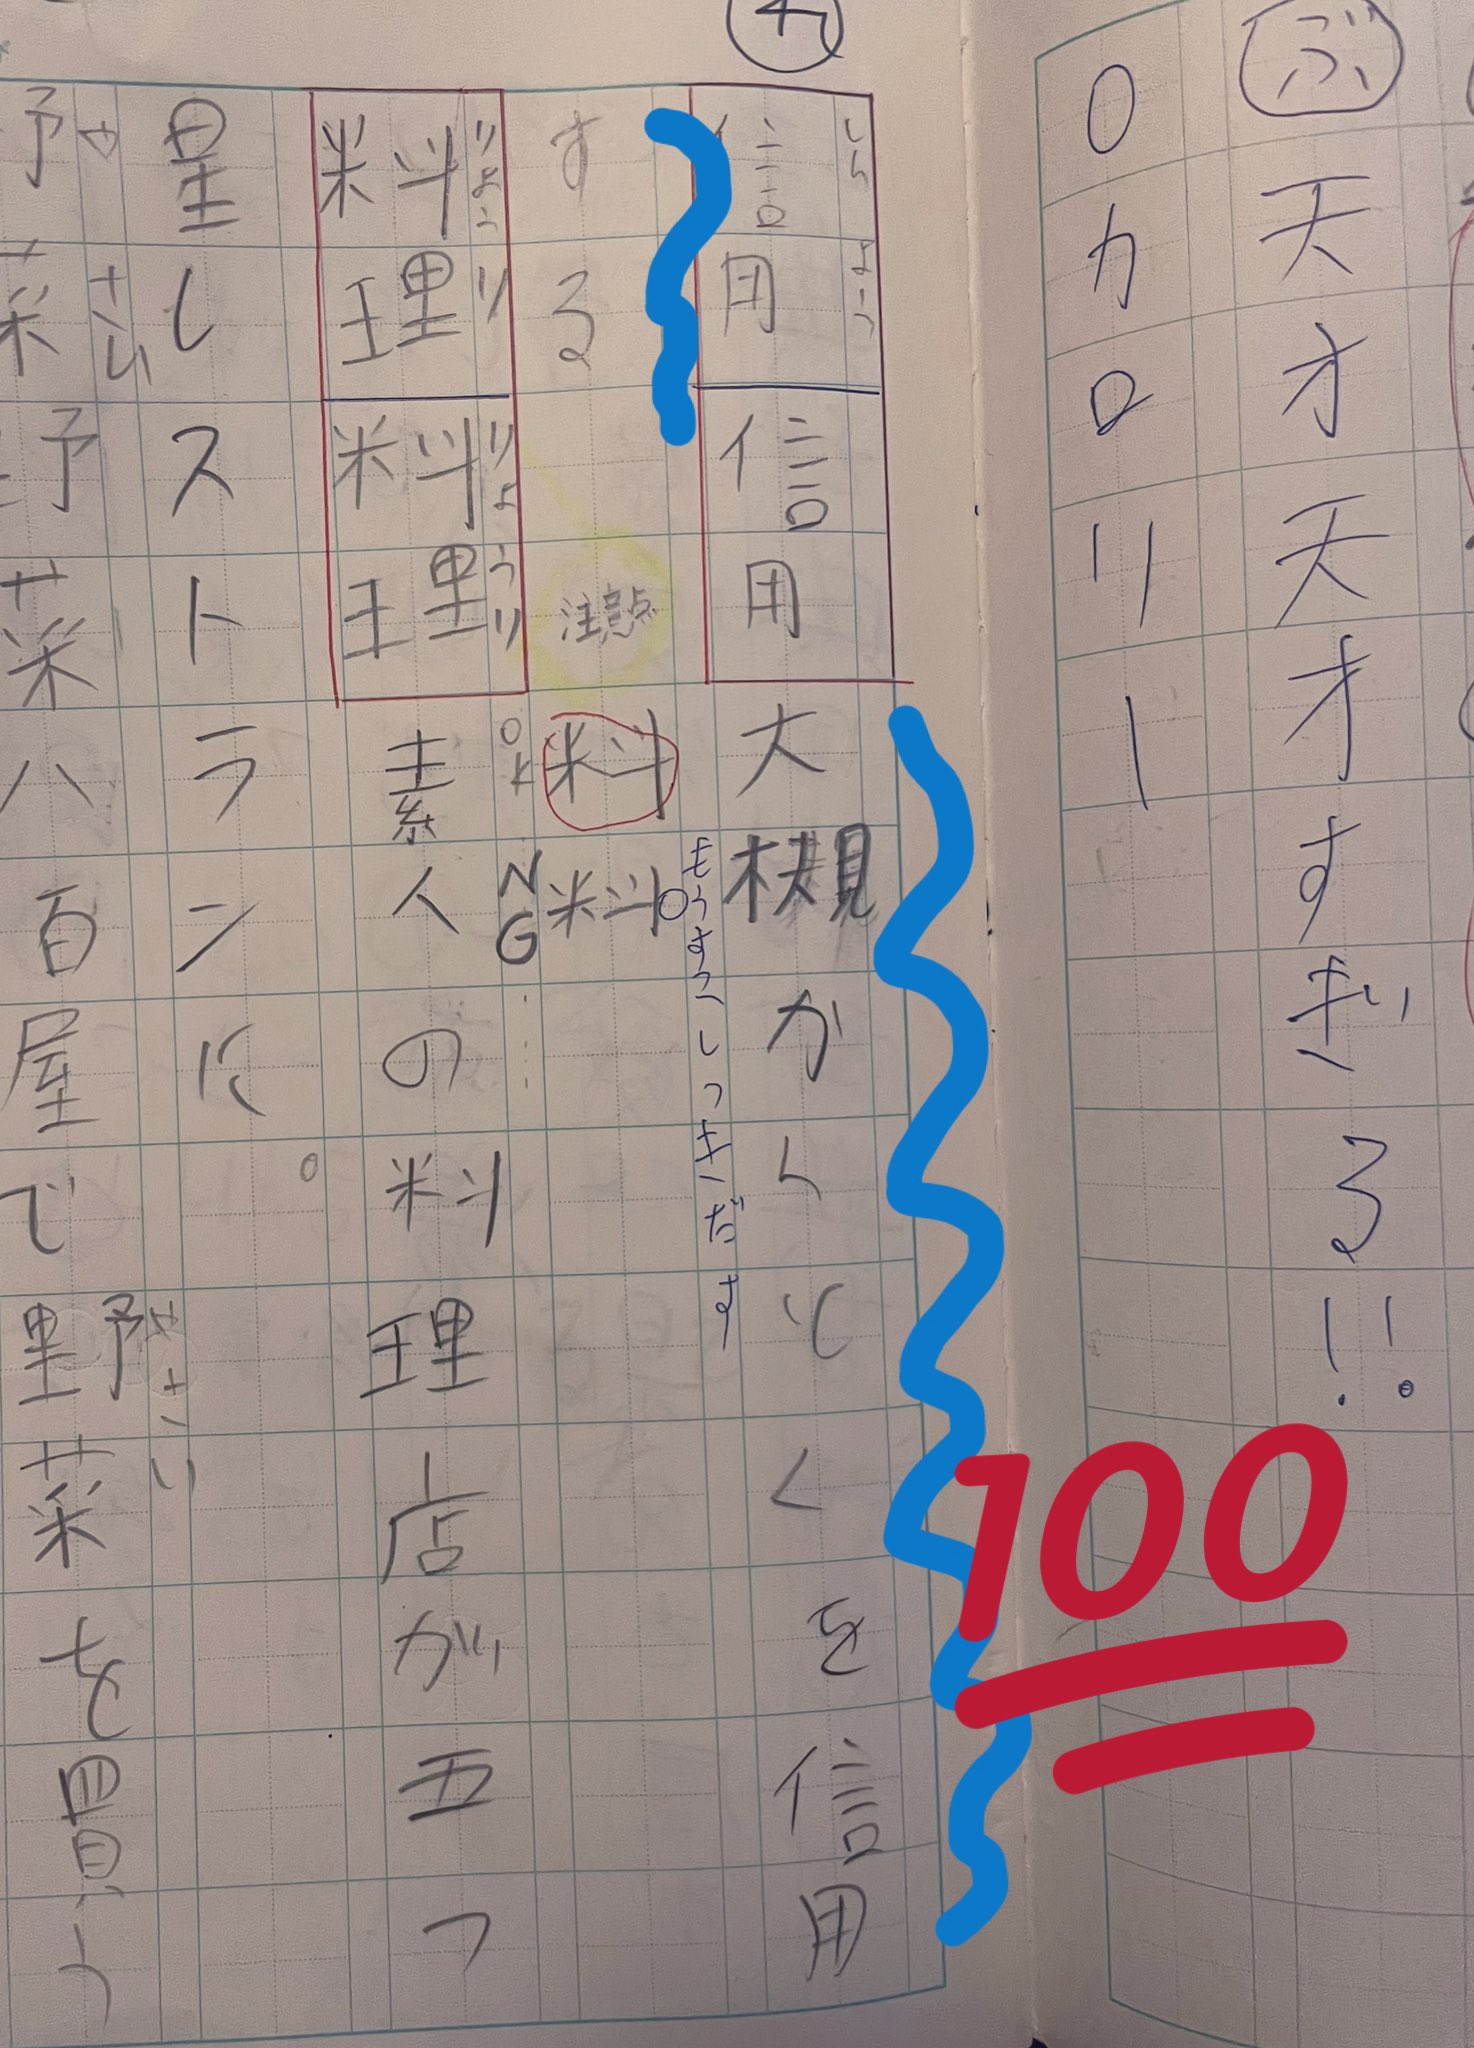 ぶ
天才天才すぎる!!
0カロリー
しんよう
信用信用大規がんしくを信用
する
もうすこしつきだす
注意点
OK料
NG料
りょうり
りょうり
料理料理素人の料理店が五つ
星レストランに。
やさい
野菜野菜八百屋で野菜を買う
やさい
100